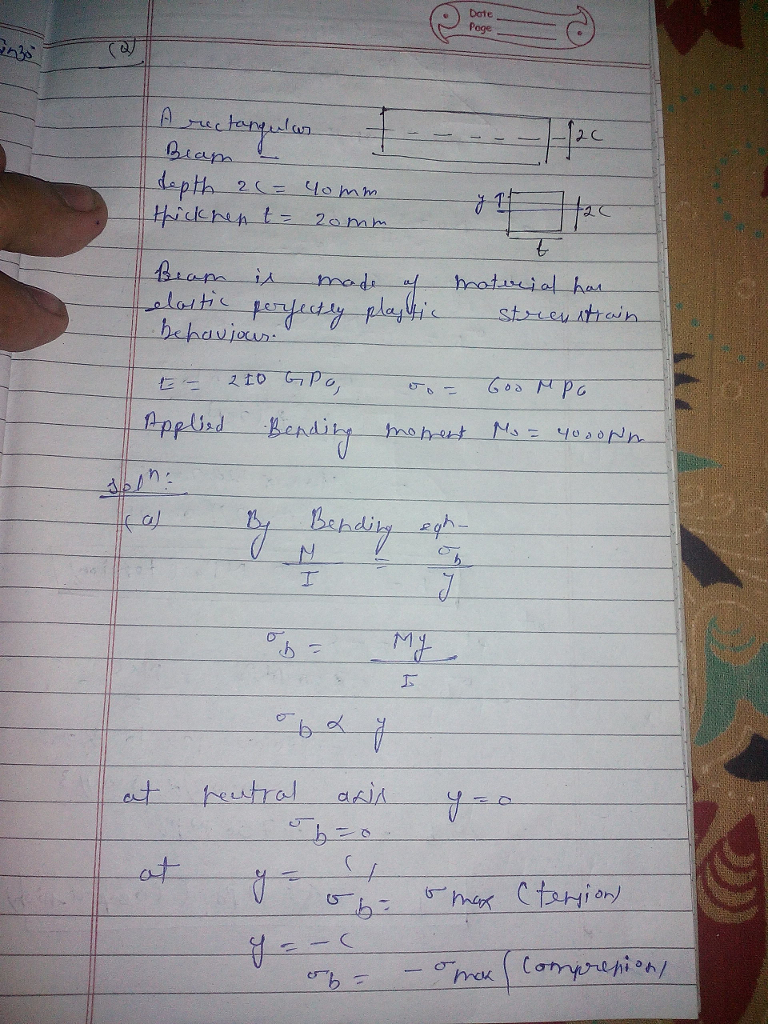 Date
Page
in30
(2)
A rectangular
Beam -
2C
depth 2C = 40 mm
y
2C
thickness t = 20mm
t
Beam is made of material has
elastic perfectly plastic stress strain
behaviour.
E = 210 GPa, σ₀ = 600 MPa
Applied Bending moment M₀ = 4000Nm
solⁿ:
(a) By Bending eqn-
M/I = σb/y
σb = My/I
σb ∝ y
at neutral axis y = 0
σb = 0
at y = C,
σb = σmax (tension)
y = -C
σb = -σmax (compression)